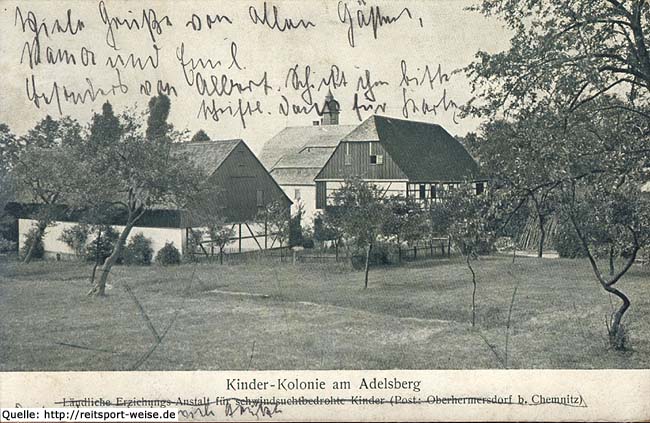 Viele Grüße von Allen Gästen,
Mama und Emil
besonders von Albert. Schickt ihm bitte
Karte
Kinder-Kolonie am Adelsberg
Ländliche Erziehungs-Anstalt für schwindsuchtbedrohte Kinder (Post: Oberhermersdorf b. Chemnitz)
Quelle: http://reitsport-weise.de